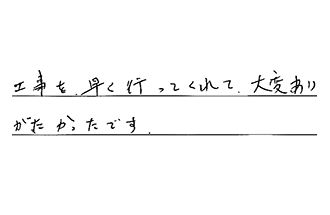 工事を、早く行ってくれて、大変あり
がたかったです.